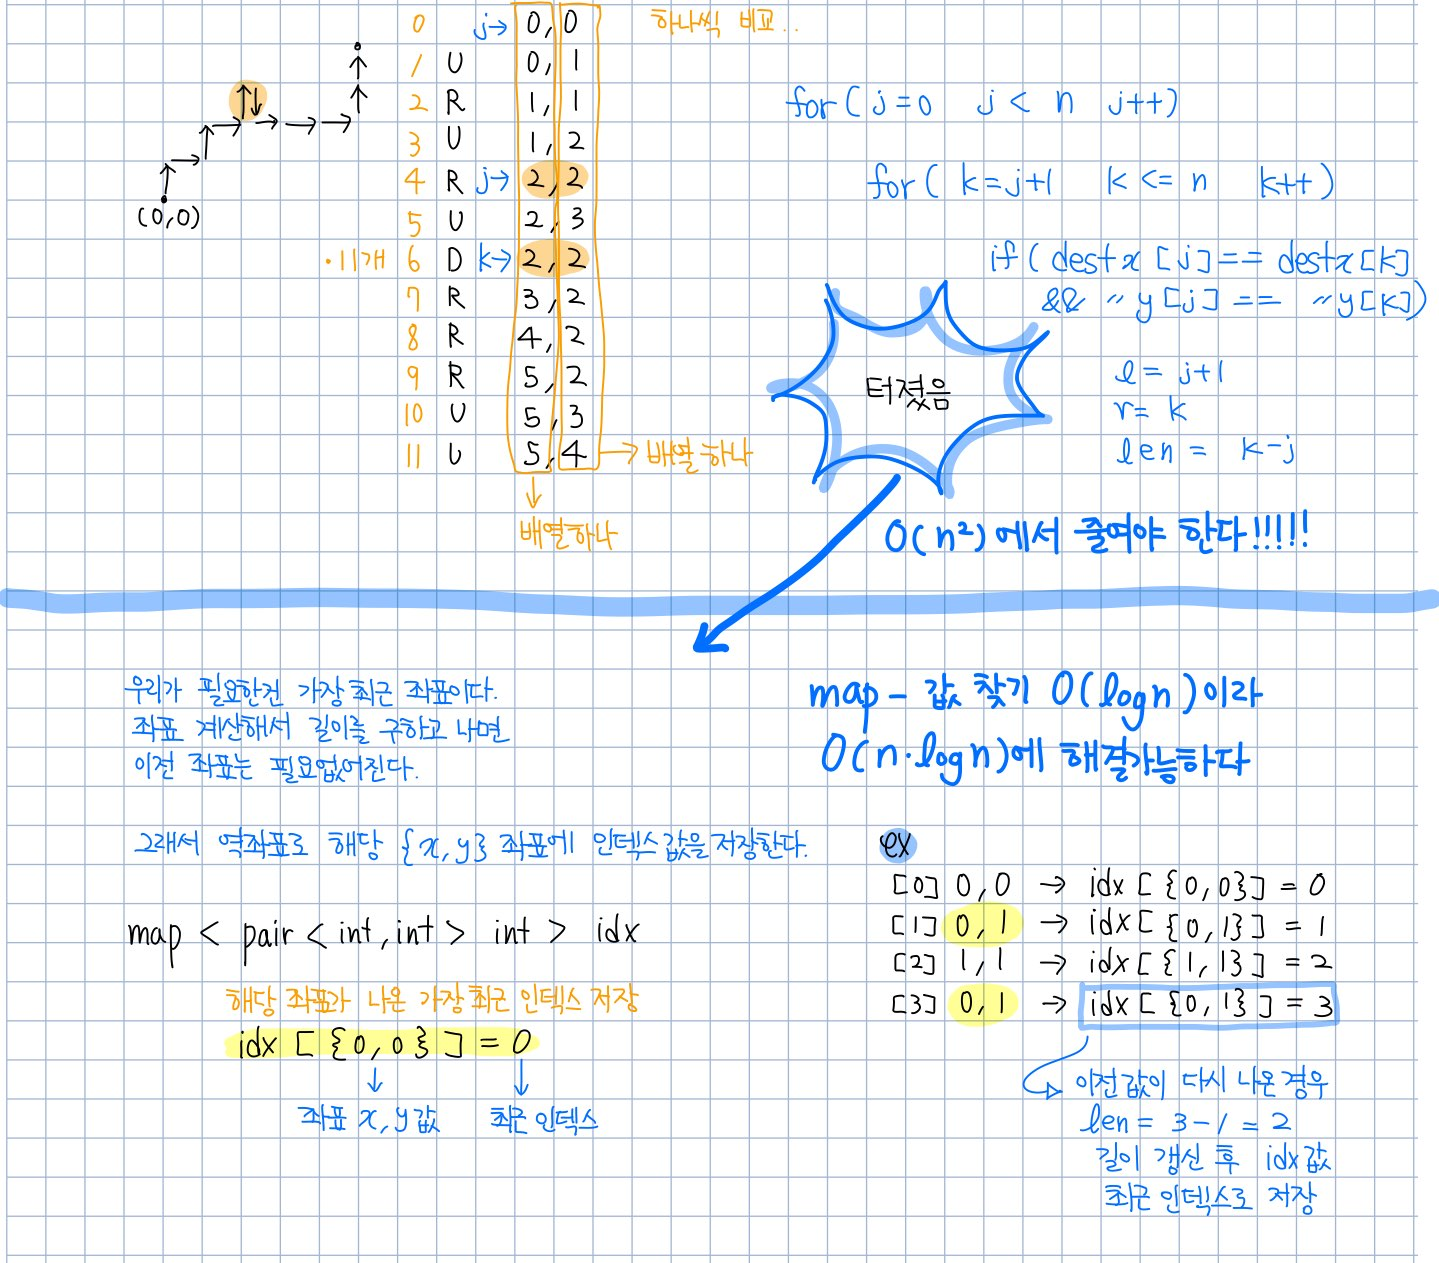 0 j→ 0, 0
1 U 0, 1
2 R 1, 1
3 U 1, 2
4 R j→ 2, 2
5 U 2, 3
·11개 6 D k→ 2, 2
7 R 3, 2
8 R 4, 2
9 R 5, 2
10 U 5, 3
11 U 5, 4 → 배열 하나
배열하나
(0,0)
하나씩 비교..
for( j=0 j < n j++)
for( k=j+1 k <= n k++)
if( destx [j]== destx[k]
&& 〃y[j] == 〃y[k])
l= j+1
r= k
len = k-j
터졌음
O(n²)에서 줄여야 한다!!!!!
우리가 필요한건 가장 최근 좌표이다.
좌표 계산해서 길이를 구하고 나면
이전 좌표는 필요없어진다.
map - 값 찾기 O(logn)이라
O(n·logn)에 해결가능하다
그래서 역좌표로 해당 {x,y} 좌표에 인덱스 값을 저장한다.
map < pair < int, int > int > idx
해당 좌표가 나온 가장 최근 인덱스 저장
idx [ {0,0} ] = 0
좌표 x, y 값
최근 인덱스
ex
[0] 0,0 → idx [ {0,0}] = 0
[1] 0,1 → idx [ {0,1}] = 1
[2] 1,1 → idx [ {1,1}] = 2
[3] 0,1 → idx [ {0,1}] = 3
이전 값이 다시 나온 경우
len = 3-1 = 2
길이 갱신 후 idx 값
최근 인덱스로 저장